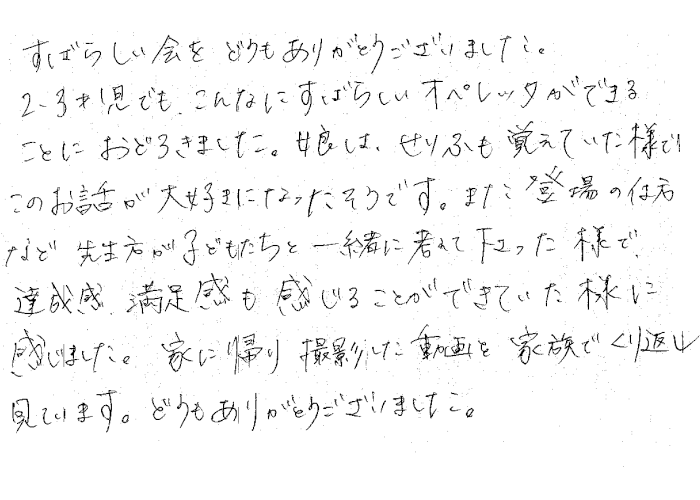 すばらしい会を どうもありがとうございました。
2、3才児でも、こんなにすばらしい オペレッタができる
ことに おどろきました。娘は、せりふも 覚えていた様で
このお話が 大好きになったそうです。また 登場の仕方
など 先生方が子どもたちと 一緒に考えて下さった様で、
達成感、満足感も 感じることができていた様に
感じました。 家に帰り 撮影した動画を 家族でくり返し
見ています。どうもありがとうございました。